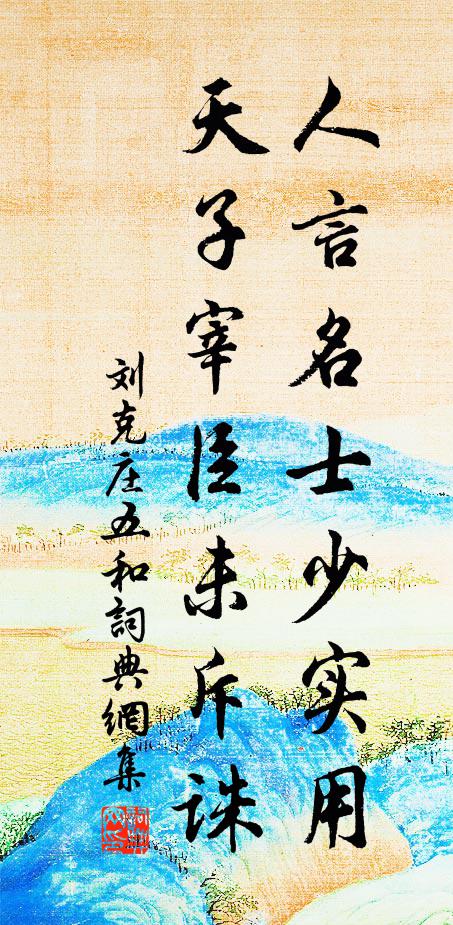 人言名士少实用
天子宰臣未斥诛
刘克庄五和詞典網集